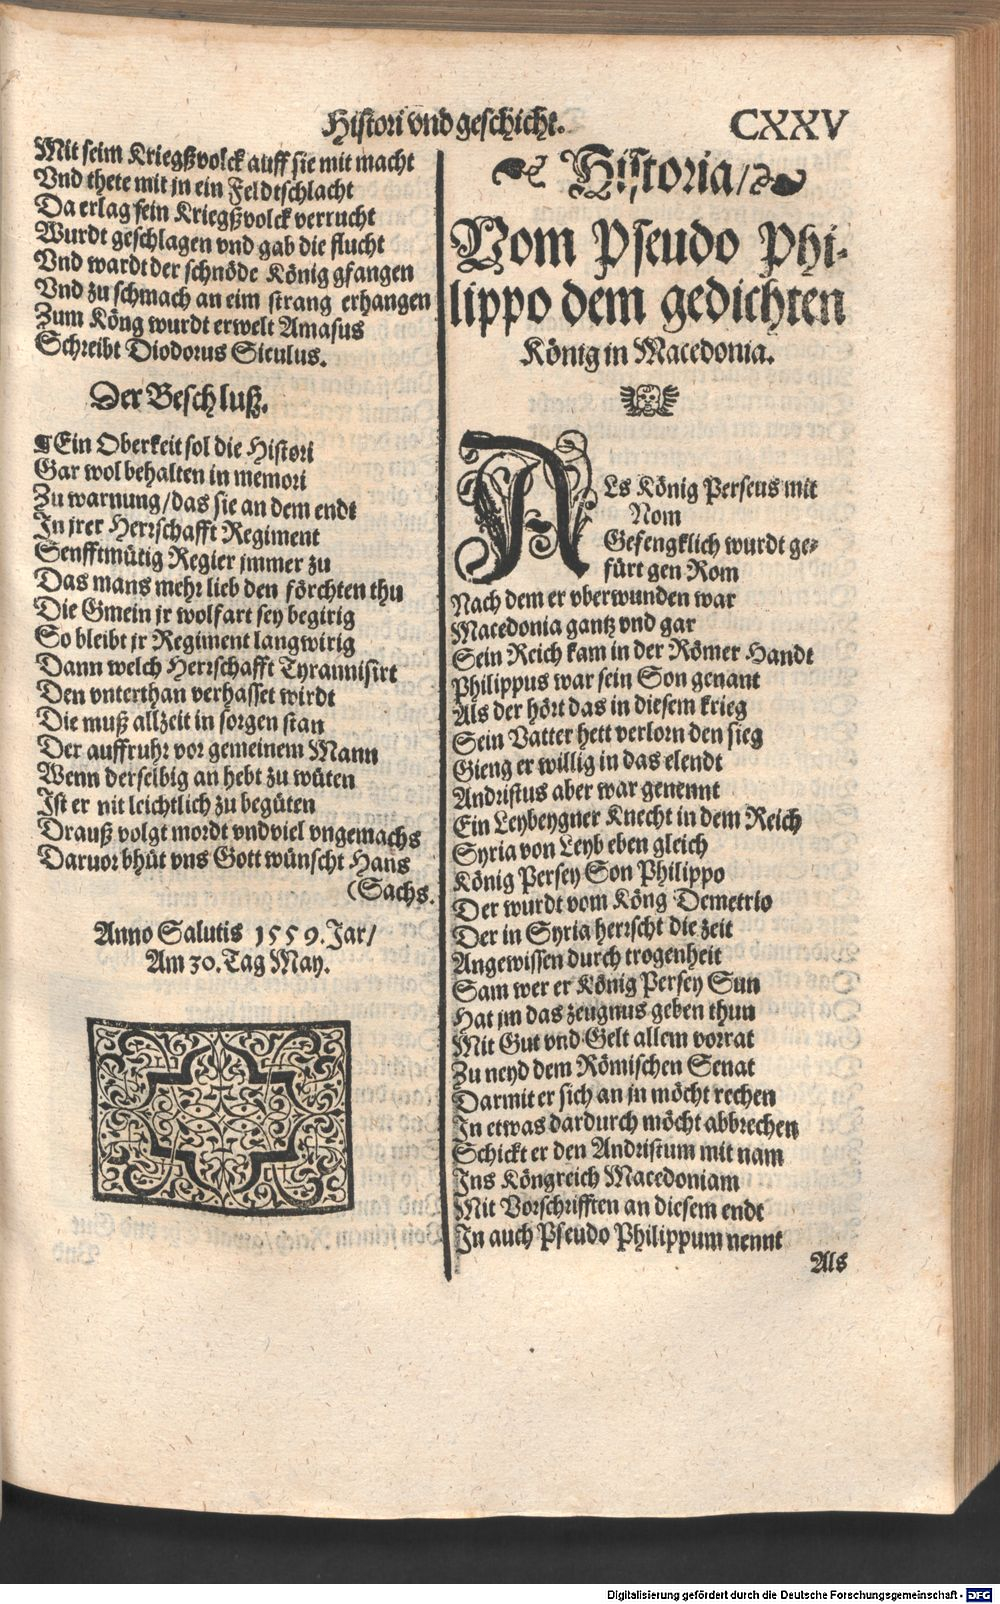 Histori vnd geschicht. CXXV
Mit seim Kriegßvolck auff sie mit macht
Vnd thete mit jn ein Feldtschlacht
Da erlag sein Kriegßvolck verrucht
Wurdt geschlagen vnd gab die flucht
Vnd wardt der schnöde König gfangen
Vnd zu schmach an eim strang erhangen
Zum Köng wurdt erwelt Amasus
Schreibt Diodorus Siculus.
Der Beschluß.
¶Ein Oberkeit sol die Histori
Gar wol behalten in memori
Zu warnung/das sie an dem endt
In jrer Herrschafft Regiment
Senfftmütig Regier jmmer zu
Das mans mehr lieb den förchten thu
Die Gmein jr wolfart sey begirig
So bleibt jr Regiment langwirig
Dann welch Herrschafft Tyrannisirt
Den vnterthan verhasset wirdt
Die muß allzeit in sorgen stan
Der auffruhr vor gemeinem Mann
Wenn derselbig an hebt zu wüten
Ist er nit leichtlich zu begüten
Drauß volgt mordt vnd viel vngemachs
Daruor bhüt vns Gott wünscht Hans
(Sachs.
Anno Salutis 1559. Jar/
Am 30. Tag May.
Historia/
Vom Pseudo Phi-
lippo dem gedichten
König in Macedonia.
ALs König Perseus mit
Nom
Gefengklich wurdt ge-
fürt gen Rom
Nach dem er vberwunden war
Macedonia gantz vnd gar
Sein Reich kam in der Römer Handt
Philippus war sein Son genant
Als der hört das in diesem krieg
Sein Vatter hett verlorn den sieg
Gieng er willig in das elendt
Andristus aber war genennt
Ein Leybeygner Knecht in dem Reich
Syria von Leyb eben gleich
König Persey Son Philippo
Der wurdt vom Köng Demetrio
Der in Syria herrscht die zeit
Angewissen durch trogenheit
Sam wer er König Persey Sun
Hat jm das zeugnus geben thun
Mit Gut vnd Gelt allem vorrat
Zu neyd dem Römischen Senat
Darmit er sich an jn möcht rechen
In etwas dardurch möcht abbrechen
Schickt er den Andristum mit nam
Ins Köngreich Macedoniam
Mit Vorschrifften an diesem endt
In auch Pseudo Philippum nennt
Als
Digitalisierung gefördert durch die Deutsche Forschungsgemeinschaft - DFG